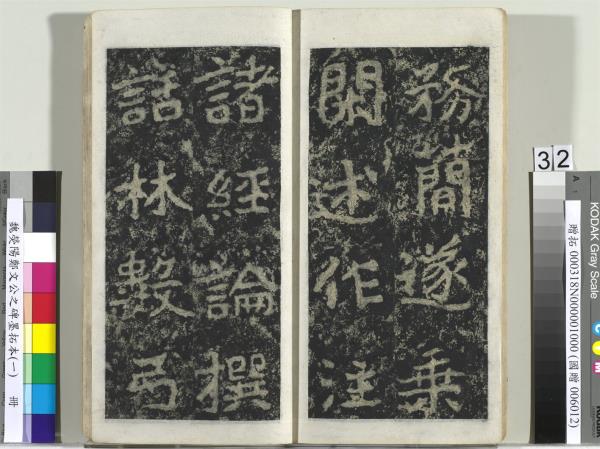 務蕳遂乗
閑述作注
諸經論撰
話林數弓
32
A
KODAK Gray Scale
C
M
Kodak
贈拓 000318N000001000 (國贈 006012)
魏滎陽鄭文公之碑墨拓本(一) 冊